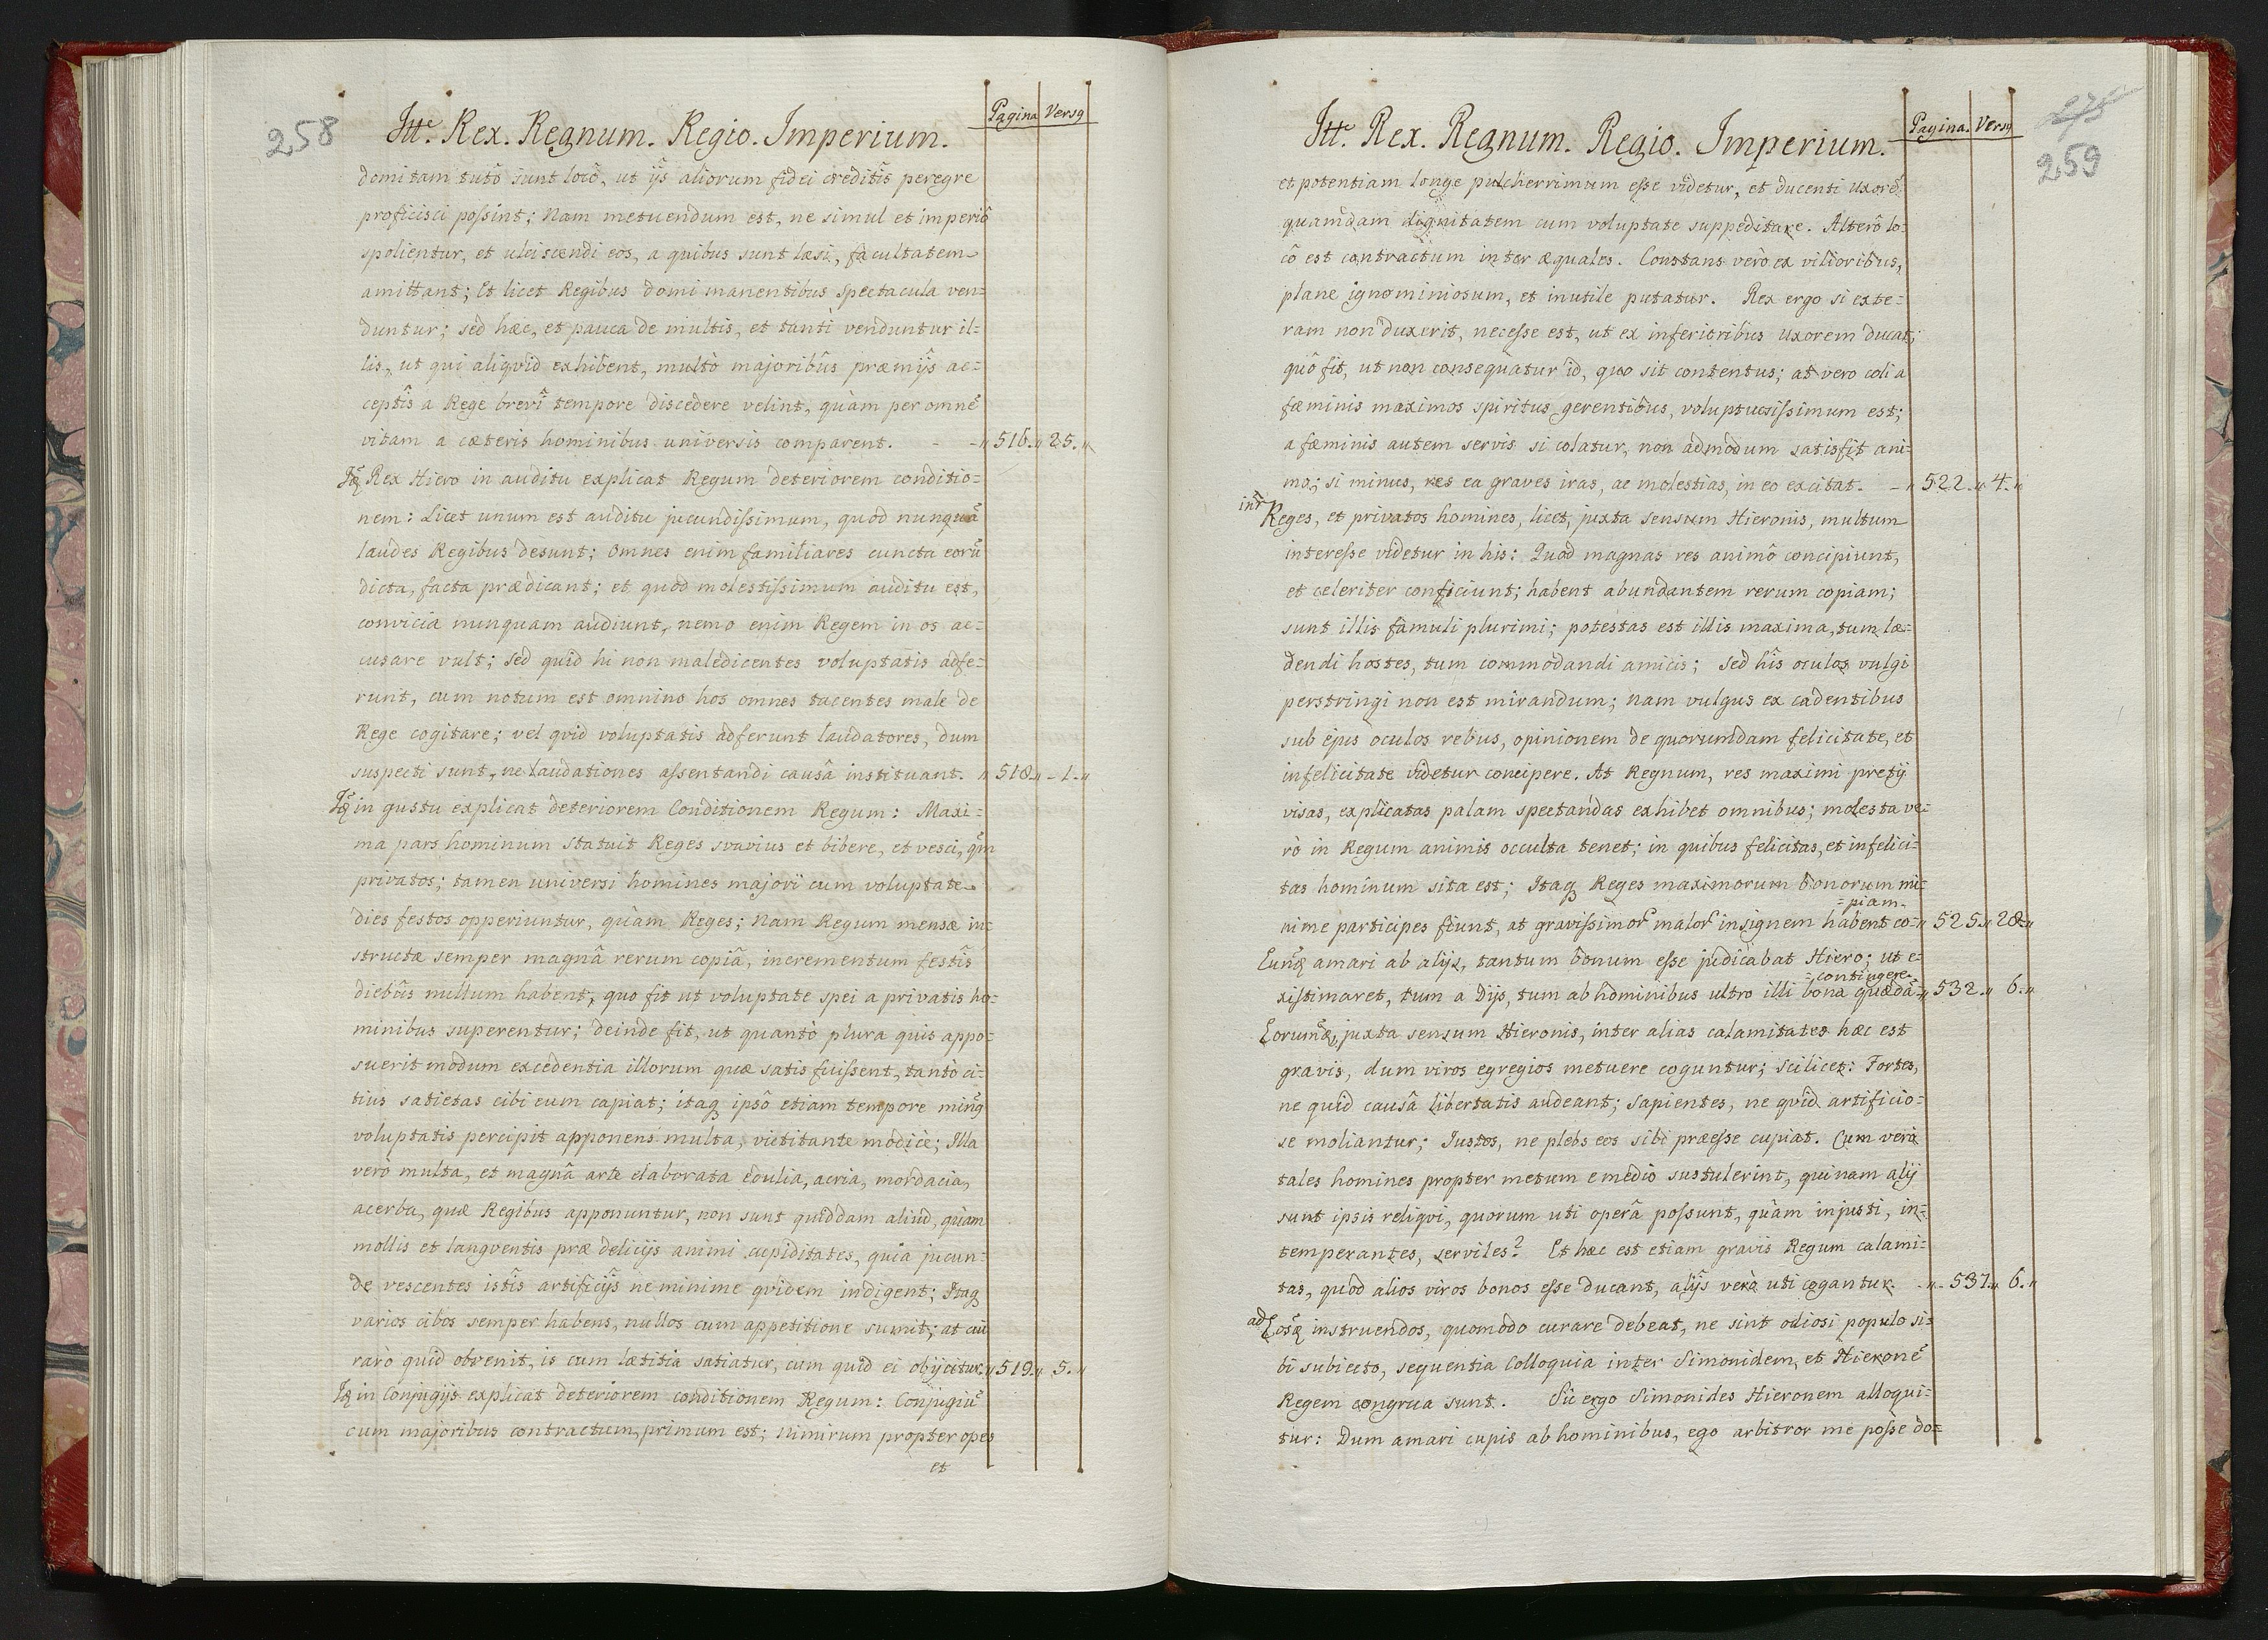 258
Itte. Rex. Regnum. Regio. Imperium.
Pagina Versq
domi tam tutô sunt locô, ut ijs aliorum fidei creditîs peregre
proficisci poſsint; Nam metuendum est, ne simul et imperiô
spolientur, et ulciscendi eos, a quibus sunt læsi, facultatem
amittant; Et licet Regibus domi manentibus spectacula ven=
duntur; sed hæc, et pauca de multis, et tanti venduntur il=
lis, ut qui aliqvid exhibent, multò majoribûs præmijs ac=
ceptîs a Rege brevî tempore discedere velint, quàm per omnē
vitam a cæteris hominibus universis comparent. - -„ 516.„ 25.„
Rex Hiero in auditu explicat Regum deteriorem conditio=
nem: Licet unum est auditu jucundiſsimum, quod nunquā
laudes Regibus desunt; omnes enim familiares cuncta eorū
dicta, facta prædicant; et quod molestiſsimum auditu est,
convicia nunquam audiunt, nemo enim Regem in os ac=
cusare vult; sed quid hi non maledicentes voluptatis adfe=
runt, cum notum est omnino hos omnes tacentes male de
Rege cogitare; vel qvid voluptatis adferunt laudatores, dum
suspecti sunt, ne laudationes aſsentandi causâ instituant. „ 518„ - 1.„
in gustu explicat deteriorem Conditionem Regum: Maxi=
ma pars hominum statuit Reges svavius et bibere, et vesci, qm
privatos; tamen universi homines majorî cum voluptate
dies festos opperiuntur, quàm Reges; Nam Regum mensæ in=
structæ semper magnâ rerum copiâ, incrementum festîs
diebûs nullum habent, quo fit ut voluptate spei a privatis ho=
minibus superentur; deinde fit, ut quantò plura quis appo=
suerit modum excedentia illorum quæ satis fuiſsent, tantò ci=
tius satietas cibi eum capiat; itaq ipsô etiam tempore minq
voluptatis percipit apponens multa, victitante modicè; Illa
verò multa, et magnâ arte elaborata edulia, acria, mordacia,
acerba, quæ Regibus apponuntur, non sunt quiddam aliud, quàm
mollis et langventis præ delicijs animi cupiditates, quia jucun=
de vescentes istîs artificijs ne minime qvidem indigent; Itaq
varios cibos semper habens, nullos cum appetitione sumit; at cui
rarò quid obvenit, is cum lætitia satiatur, cum quid ei objicitur. „ 519.„ 5.„
in Conjugijs explicat deteriorem conditionem Regum: Conjugiū
cum majoribus contractum, primum est; nimirum propter opes
et
275
259
Itt. Rex. Regnum. Regio. Imperium.
Pagina. Versq
et potentiam longe pulcherrimum eſse videtur, et ducenti uxorē
quamdam dignitatem cum voluptate suppeditare. Alterô lo=
cô est contractum inter æquales. Constans verò ex vilioribus,
plane ignominiosum, et inutile putatur. Rex ergo si exte=
ram non duxerit, neceſse est, ut ex inferioribus uxorem ducat;
quô fit, ut non consequatur id, quo sit contentus; at vero coli a
fæminis maximos spiritus gerentibus, voluptuosiſsimum est;
a fæminis autem servis si colatur, non admodum satisfit ani=
mo; si minus, res ea graves iras, ac molestias, in eo excitat. -„ 522.„ 4.„
intr Reges, et privatos homines, licet, juxta sensum Hieronis, multum
intereſse videtur in his: Quod magnas res animô concipiunt,
et celeriter conficiunt; habent abundantem rerum copiam;
sunt illis famuli plurimi; potestas est illis maxima, tum læ=
dendi hostes, tum commodandi amicis; sed hîs oculos vulgi
perstringi non est mirandum; nam vulgus ex cadentibus
sub ejus oculos rebus, opinionem de quorumdam felicitate, et
infelicitate videtur concipere. At Regnum, res maximi pretij
visas, explicatas palam spectandas exhibet omnibus; molesta ve=
rò in Regum animis occulta tenet; in quibus felicitas, et infelici=
tas hominum sita est; Itaq Reges maximorum bonorum mi=
nime participes fiunt, at graviſsimor malor insignem habent co= „ 525.„ 28„
=piam.
amari ab alijs, tantum bonum eſse judicabat Hiero; ut e=
xistimaret, tum a Dijs, tum ab hominibus ultro illi bona quædā „ 532.„ 6.„
=contingere.
juxta sensum Hieronis, inter alias calamitates hæc est
gravis, dum viros egregios metuere coguntur; scilicet: Fortes,
ne quid causâ libertatis audeant; sapientes, ne qvid artificio=
se moliantur; Iustos, ne plebs eos sibi præeſse cupiat. Cum verò
tales homines propter metum e medio sustulerint, quinam alij
sunt ipsis reliqvi, quorum uti operâ poſsunt, quàm injusti, in=
temperantes, serviles? Et hæc est etiam gravis Regum calami=
tas, quod alios viros bonos eſse ducant, alijs verò uti cogantur. -„- 537.„ 6.„
ad instruendos, quomodo curare debeat, ne sint odiosi populo si=
bi subjecto, sequentia Colloquia inter Simonidem, et Hieronē
Regem congrua sunt. Sic ergo Simonides Hieronem alloqui=
tur: Dum amari cupis ab hominibus, ego arbitror me poſse do=